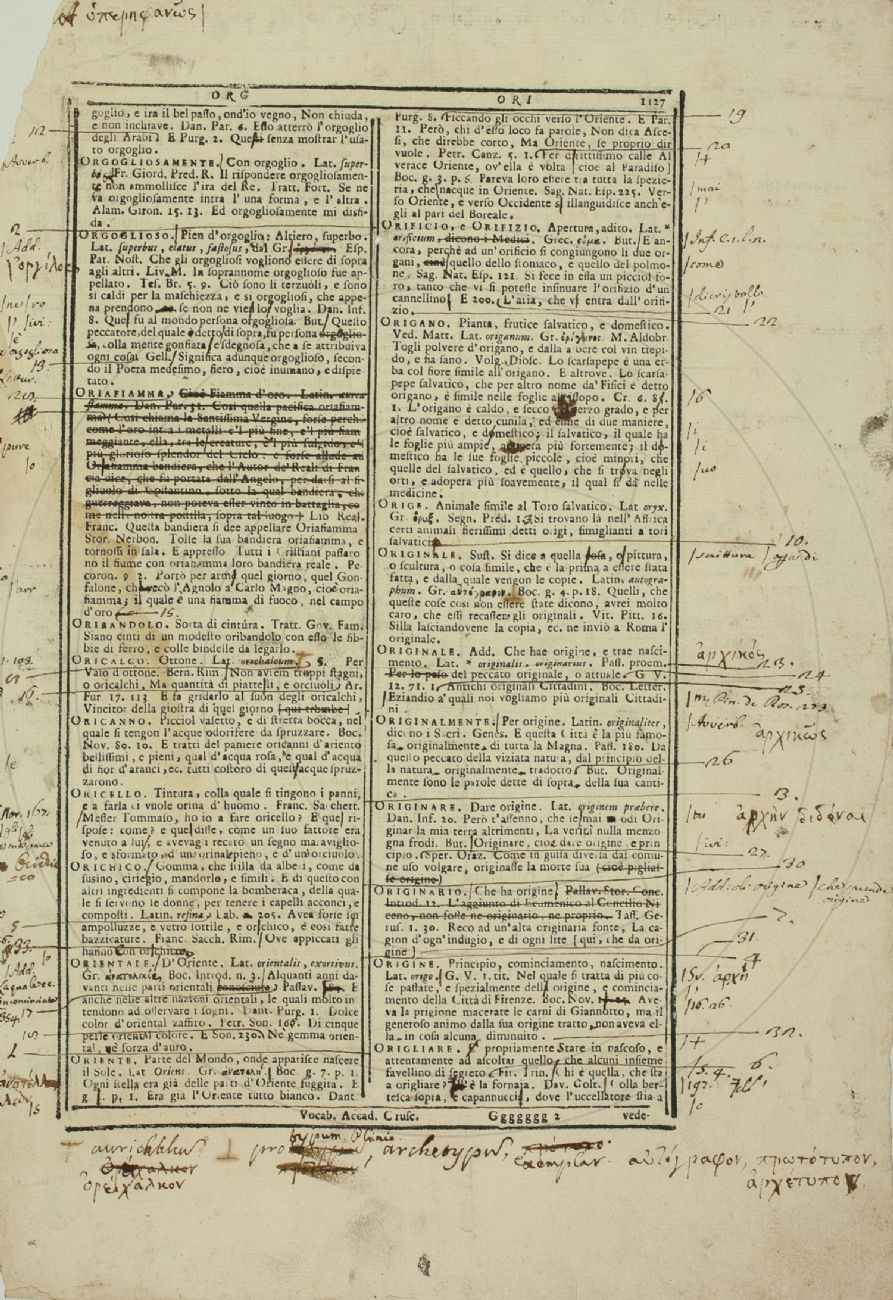 ὑπερηφανῶς
ORG
ORI
1127
goglio, e ira il bel passo, ond'io vegno, Non chiuda,
e non inchiave. Dan. Par. 6. Esso atterrò l'orgoglio
degli Arabi. E Purg. 2. senza mostrar l'usa-
to orgoglio.
ORGOGLIOSAMENTE. Con orgoglio. Lat. super-
Fr. Giord. Pred. R. Il rispondere orgogliosamen-
te non ammollisce l'ira del Re. Tratt. Fort. Se ne
va orgogliosamente intra l'una forma, e l'altra.
Alam. Giron. 15. 13. Ed orgogliosamente mi disfi-
da.
ORGOGLIOSO. Pien d'orgoglio: Altiero, superbo.
Lat. superbus, elatus, fastosus, Gr. Esp.
Pat. Nost. Che gli orgogliosi vogliono essere di sopra
agli altri. Liv. M. in soprannome orgoglioso fue ap-
pellato. Tes. Br. 5. 9. Ciò sono li terzuoli, e sono
si caldi per la maschiezza, e si orgogliosi, che appe-
na prendono se non ne vien lor voglia. Dan. Inf.
8. Quei fu al mondo persona orgogliosa. But. Questo
peccatore, del quale è detto di sopra, fu persona orgoglio-
sa, colla mente gonfiata e sdegnosa, che a se attribuiva
ogni cosa. Gell. Significa adunque orgoglioso, secon-
do il Poeta medesimo, fiero, cioè inumano, e dispie
tato.
ORIAFIAMMA. Cioè Fiamma d'oro. Latin. auro
flamma. Dan. Par. 31. Così quella pacifica oriafiam-
ma (Cosi chiama la Santissima Vergine, forse perch
come l'oro intra i metalli è'l più fine, e'l più fiam
meggiante, ella, tra le creature, è'l più fulgido, e'l
più glorioso splendor del Cielo: e forse allude ad
Oriafiamma bandiera, che l'Autor de'Reali di Fran
cia dice, che fu portata dall'Angelo, per darsi al fi-
gliuolo di Costantino, sotto la qual bandiera, chi
guerreggiava, non poteva esser vinto in battaglia, co
me nell'nostra postilla, sopra tal luogo) Lib Real.
Franc. Questa bandiera si dee appellare Oriafiamma.
Stor. Nerbon. Tolse la sua bandiera oriafiamma, e
tornossi in sala. E appresso Tutti i Cristiani passaro
no il fiume con oriafiamma loro bandiera reale. Pe-
coron. 9 2. Portò per arme quel giorno, quel Gon-
falone, che recò l'Agnolo a Carlo Magno, cioè oria-
fiamma; il quale è una fiamma di fuoco, nel campo
d'oro 15.
ORIBANDOLO. Sorta di cintura. Tratt. Gov. Fam.
Siano cinti di un modesto oribandolo con esso le fib-
bie di ferro, e colle bindelle da legarlo.
ORICALCO. Ottone. Lat. orichalcum. §. Per
Vaso d'ottone. Bern. Rim. Non aviem troppi stagni,
o oricalchi, Ma quantità di piattelli, e orciuoli. Ar.
Fur. 17. 113 E fa gridarlo al suon degli oricalchi,
Vincitor della giostra di quel giorno (qui trombe)
ORICANNO. Picciol vasetto, e di stretta bocca, nel
quale si tengon l'acque odorifere da spruzzare. Boc.
Nov. 80. 10. E tratti del paniere oricanni d'ariento
bellissimi, e pieni, qual d'acqua rosa, e qual d'acqua
di fior d'aranci, ec. tutti costoro di quest'acque spruz-
zarono.
ORICELLO. Tintura, colla quale si tingono i panni,
e a farla ci vuole orina d'huomo. Franc. Sacchett.
Messer Tommaso, ho io a fare oricello? E quei ri-
spose: come? e quei disse, come un suo fattore era
venuto a lui, e avevagli recato un segno maraviglio-
so, e sformato, d'un orinal pieno, e d'un orciuolo.
ORICHICO. Gomma, che stilla da alberi, come da
susino, ciriegio, mandorlo, e simili. E di questo con
altri ingredienti si compone la bomberaca, della qua-
le si servono le donne, per tenere i capelli acconci, e
composti. Latin. resina. Lab. 205. Avea forse sei
ampolluzze, e vetro sottile, e orichico, e così fatte
bazzicature. Franc. Sacch. Rim. Ove appiccati gli
hanno Con orichico.
ORIENTALE. D'Oriente. Lat. orientalis, exortivus.
Gr. ἀνατολικός. Boc. Introd. n. 3. Alquanti anni da-
vanti nelle parti orientali conosciuto Passav.
anche nelle altre nazioni orientali, le quali molto in
tendono ad osservare i sogni. Dant. Purg. 1. Dolce
color d'oriental zaffiro. Petr. Son. 166. Di cinque
perle oriental colore. E Son. 230. Ne gemma orien-
tal, nè forza d'auro.
ORIENTE. Parte del Mondo, onde apparisce nascere
il Sole. Lat Oriens. Gr. ἀνατολή. Boc. g. 7. p. 1.
Ogni stella era già delle parti d'Oriente fuggita. E
g. p. 1. Era già l'Oriente tutto bianco. Dant
Purg. 8. Ficcando gli occhi verso l'Oriente. E Par.
11. Però, chi d'esso loco fa parole, Non dica Asce-
si, che direbbe corto, Ma Oriente, se proprio dir
vuole. Petr. Canz. 5. 1. Per drittissimo calle Al
verace Oriente, ov'ella è volta (cioè al Paradiso)
Boc. g. 3. p. 6 Pareva loro essere tra tutta la spezie-
ria, che nacque in Oriente. Sag. Nat. Esp. 225. Ver-
so Oriente, e verso Occidente si illanguidisce anch'e-
gli al pari del Boreale.
ORIFICIO, e ORIFIZIO. Apertura, adito. Lat. *
orificium, dicono i Medici. Grec. But. E an-
cora, perchè ad un'orificio si congiungono li due or-
gani, cioè quello dello stomaco, e quello del polmo-
ne. Sag. Nat. Esp. 121. Si fece in essa un piccol fo-
ro, tanto che vi si potesse insinuare l'orifizio d'un
cannellino. E 200. L'aria, che vi entra dall'orifi-
zio.
ORIGANO. Pianta, frutice salvatico, e domestico.
Ved. Matt. Lat. origanum. Gr. ὀρίγανος. M. Aldobr.
Togli polvere d'origano, e dalla a bere col vin tiepi-
do, e fia sano. Volg. Diosc. Lo scarsapepe è una er-
ba col fiore simile all'origano. E altrove. Lo scarsa-
pepe salvatico, che per altro nome da' Fisici è detto
origano, è simile nelle foglie all'isopo. Cr. 6. 81.
1. L'origano è caldo, e secco terzo grado, e per
altro nome è detto cunila, ed enne di due maniere,
cioè salvatico, e domestico; il salvatico, il quale ha
le foglie più ampie, adopera più fortemente; il do-
mestico ha le sue foglie piccole, cioè minori, che
quelle del salvatico, ed è quello, che si trova negli
orti, e adopera più soavemente, il qual si dà nelle
medicine.
ORIGE. Animale simile al Toro salvatico. Lat oryx.
Gr. ὄρυξ. Segn. Pred. 13. Si trovano là nell'Affrica
certi animali fierissimi detti origi, simiglianti a tori
salvatici
ORIGINALE. Sust. Si dice a quella cosa, o pittura,
o scultura, o cosa simile, che è la prima a essere stata
fatta, e dalla quale vengon le copie. Latin. autogra-
phum. Gr. αὐτόγραφον. Boc. g. 4. p. 18. Quelli, che
queste cose così non essere state dicono, avrei molto
caro, che essi recassero gli originali. Vit. Pitt. 16.
Silla lasciandovene la copia, ec. ne inviò a Roma l'
originale.
ORIGINALE. Add. Che hae origine, e trae nasci-
mento. Lat. * originalis. originarius. Pass. proem.
Per lo peso del peccato originale, o attuale. G V.
12. 71. 1. Antichi originali Cittadini. Boc. Letter.
Eziandio a'quali noi vogliamo più originali Cittadi-
ni.
ORIGINALMENTE. Per origine. Latin. originaliter,
dicono i Sacri. Genes. E questa Città è la più famo-
sa, originalmente, di tutta la Magna. Pass. 180. Da
quello peccato della viziata natura, dal principio del-
la natura, originalmente, tradotto. But. Original-
mente sono le parole dette di sopra, della sua canti-
ca.
ORIGINARE. Dare origine. Lat. originem præbere.
Dan. Inf. 20. Però t'assenno, che se mai odi Ori-
ginar la mia terra altrimenti, La verità nulla menzo
gna frodi. But. Originare, cioè dare origine, e prin-
cipio. Sper. Oraz. Come in guisa diversa dal comu-
ne uso volgare, originasse la morte sua (cioè piglias-
se origine)
ORIGINARIO. Che ha origine. Pallav. Stor. Conc.
Introd. 12. L'aggiunto di Ecumenico al Concilio Ni
ceno, non fosse ne originario, ne proprio. Tass. Ge-
rus. 1. 30. Reco ad un'alta originaria fonte, La ca-
gion d'ogn'indugio, e di ogni lite (qui, che da ori-
gine)
ORIGINE. Principio, cominciamento, nascimento.
Lat. origo. G. V. 1. tit. Nel quale si tratta di più co-
se passate, e spezialmente dell'origine, e comincia-
mento della Città di Firenze. Boc. Nov. Ave-
va la prigione macerate le carni di Giannotto, ma il
generoso animo dalla sua origine tratto, non aveva el-
la, in cosa alcuna, diminuito.
ORIGLIARE. E propriamente Stare in nascoso, e
attentamente ad ascoltar quello, che alcuni insieme
favellino di segreto. Fir. Trin. Chi è quella, che sta
a origliare? è la fornaja. Dav. Colt. Colla ber-
tesca sopra, e capannuccia, dove l'uccellatore stia a
Vocab. Accad. Crusc.
Ggggggg 2
vede-
19
20
mai
come
21
22
16
10.
scrittura
ἀρχικός
23.
24
25
Avverb.
ἀρχικῶς
26
3.
ἀρχὴν διδόναι
27
30
origine
2.
31.
4
ἀρχή
32
6.
archetypus,
exemplar.
αὐτόγραφον, πρωτότυπον,
ἀρχετυπον
ὀρείχαλκον